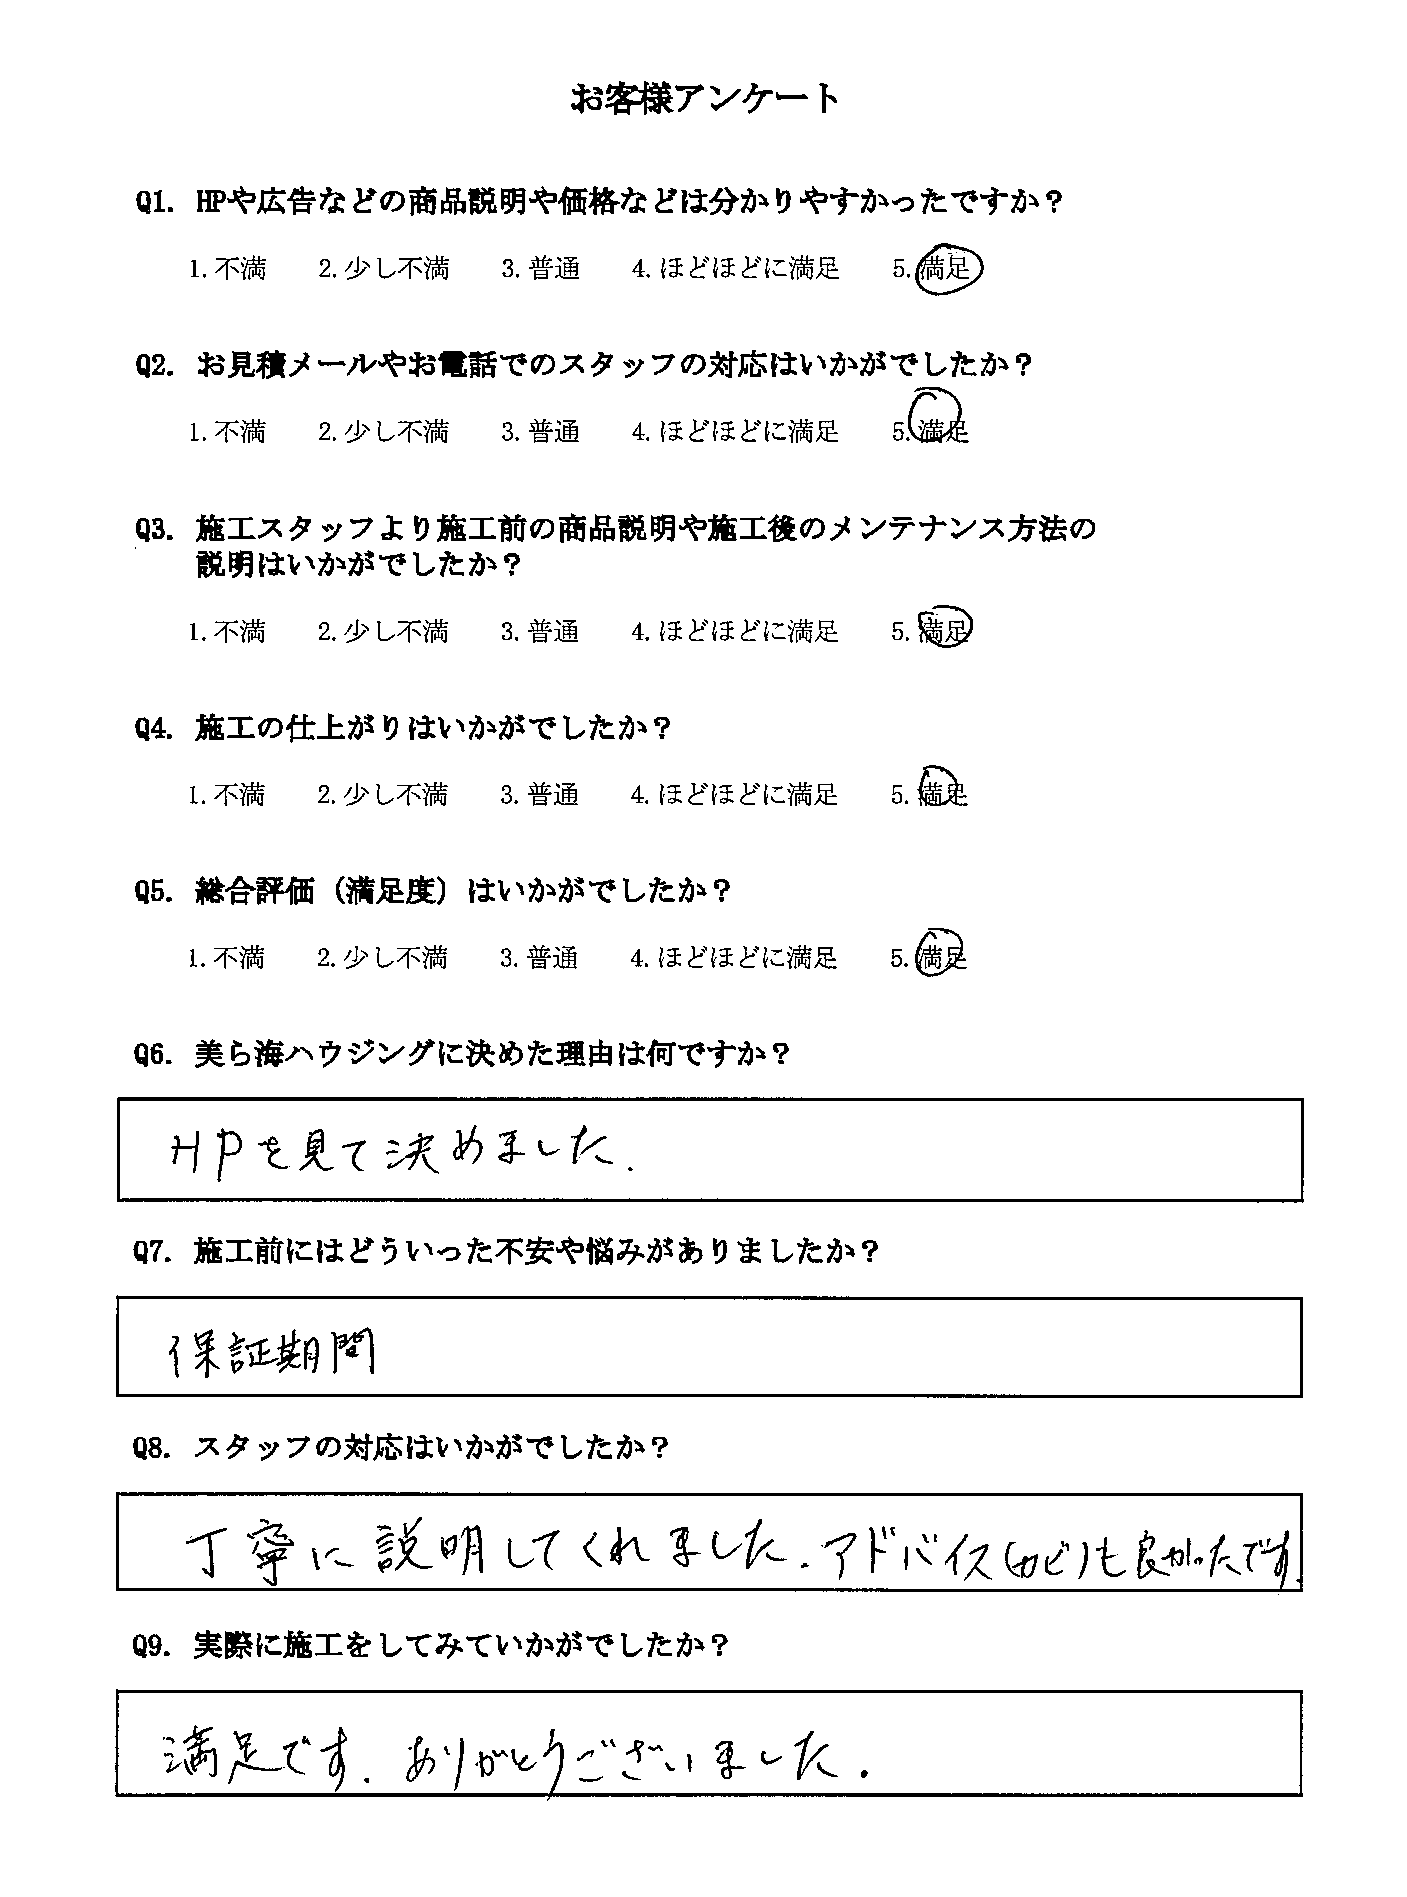 お客様アンケート
Q1. HPや広告などの商品説明や価格などは分かりやすかったですか？
1. 不満 2. 少し不満 3. 普通 4. ほどほどに満足 5. 満足
Q2. お見積メールやお電話でのスタッフの対応はいかがでしたか？
1. 不満 2. 少し不満 3. 普通 4. ほどほどに満足 5. 満足
Q3. 施工スタッフより施工前の商品説明や施工後のメンテナンス方法の
説明はいかがでしたか？
1. 不満 2. 少し不満 3. 普通 4. ほどほどに満足 5. 満足
Q4. 施工の仕上がりはいかがでしたか？
1. 不満 2. 少し不満 3. 普通 4. ほどほどに満足 5. 満足
Q5. 総合評価（満足度）はいかがでしたか？
1. 不満 2. 少し不満 3. 普通 4. ほどほどに満足 5. 満足
Q6. 美ら海ハウジングに決めた理由は何ですか？
HPを見て決めました.
Q7. 施工前にはどういった不安や悩みがありましたか？
保証期間
Q8. スタッフの対応はいかがでしたか？
丁寧に説明してくれました. アドバイス(カビ)も良かったです.
Q9. 実際に施工をしてみていかがでしたか？
満足です. ありがとうございました.